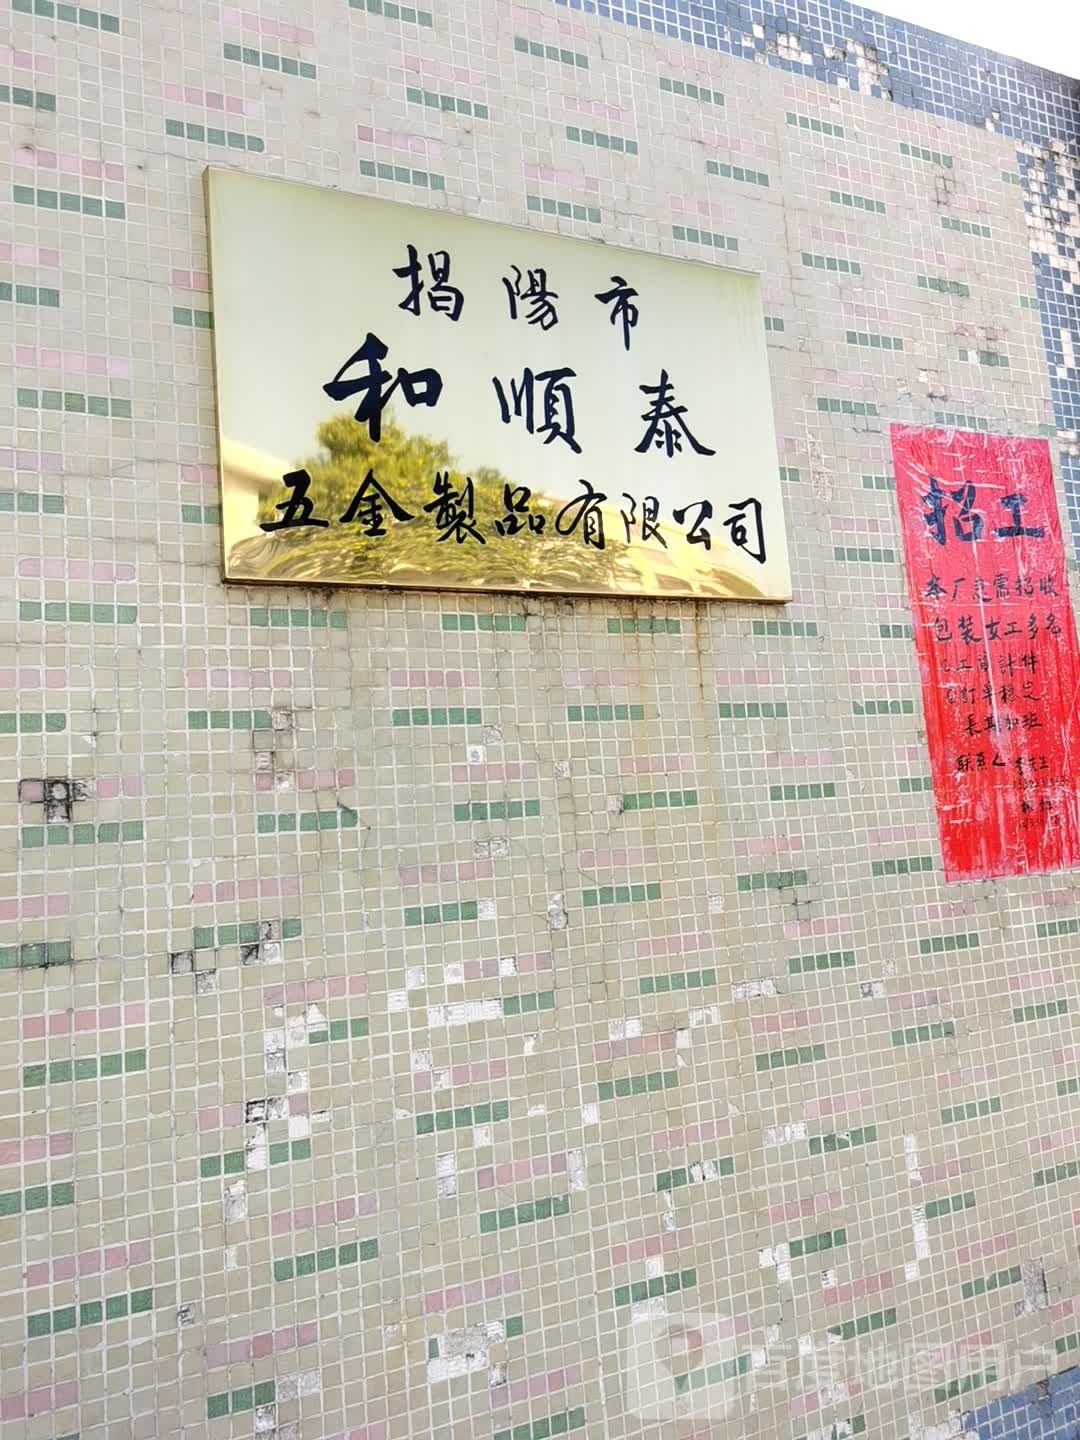 揭陽市
和順泰
五金製品有限公司
招工
本厂急需招收
包装女工多名
工資計件
訂單稳定
長期加班
联系人
百度地图用户